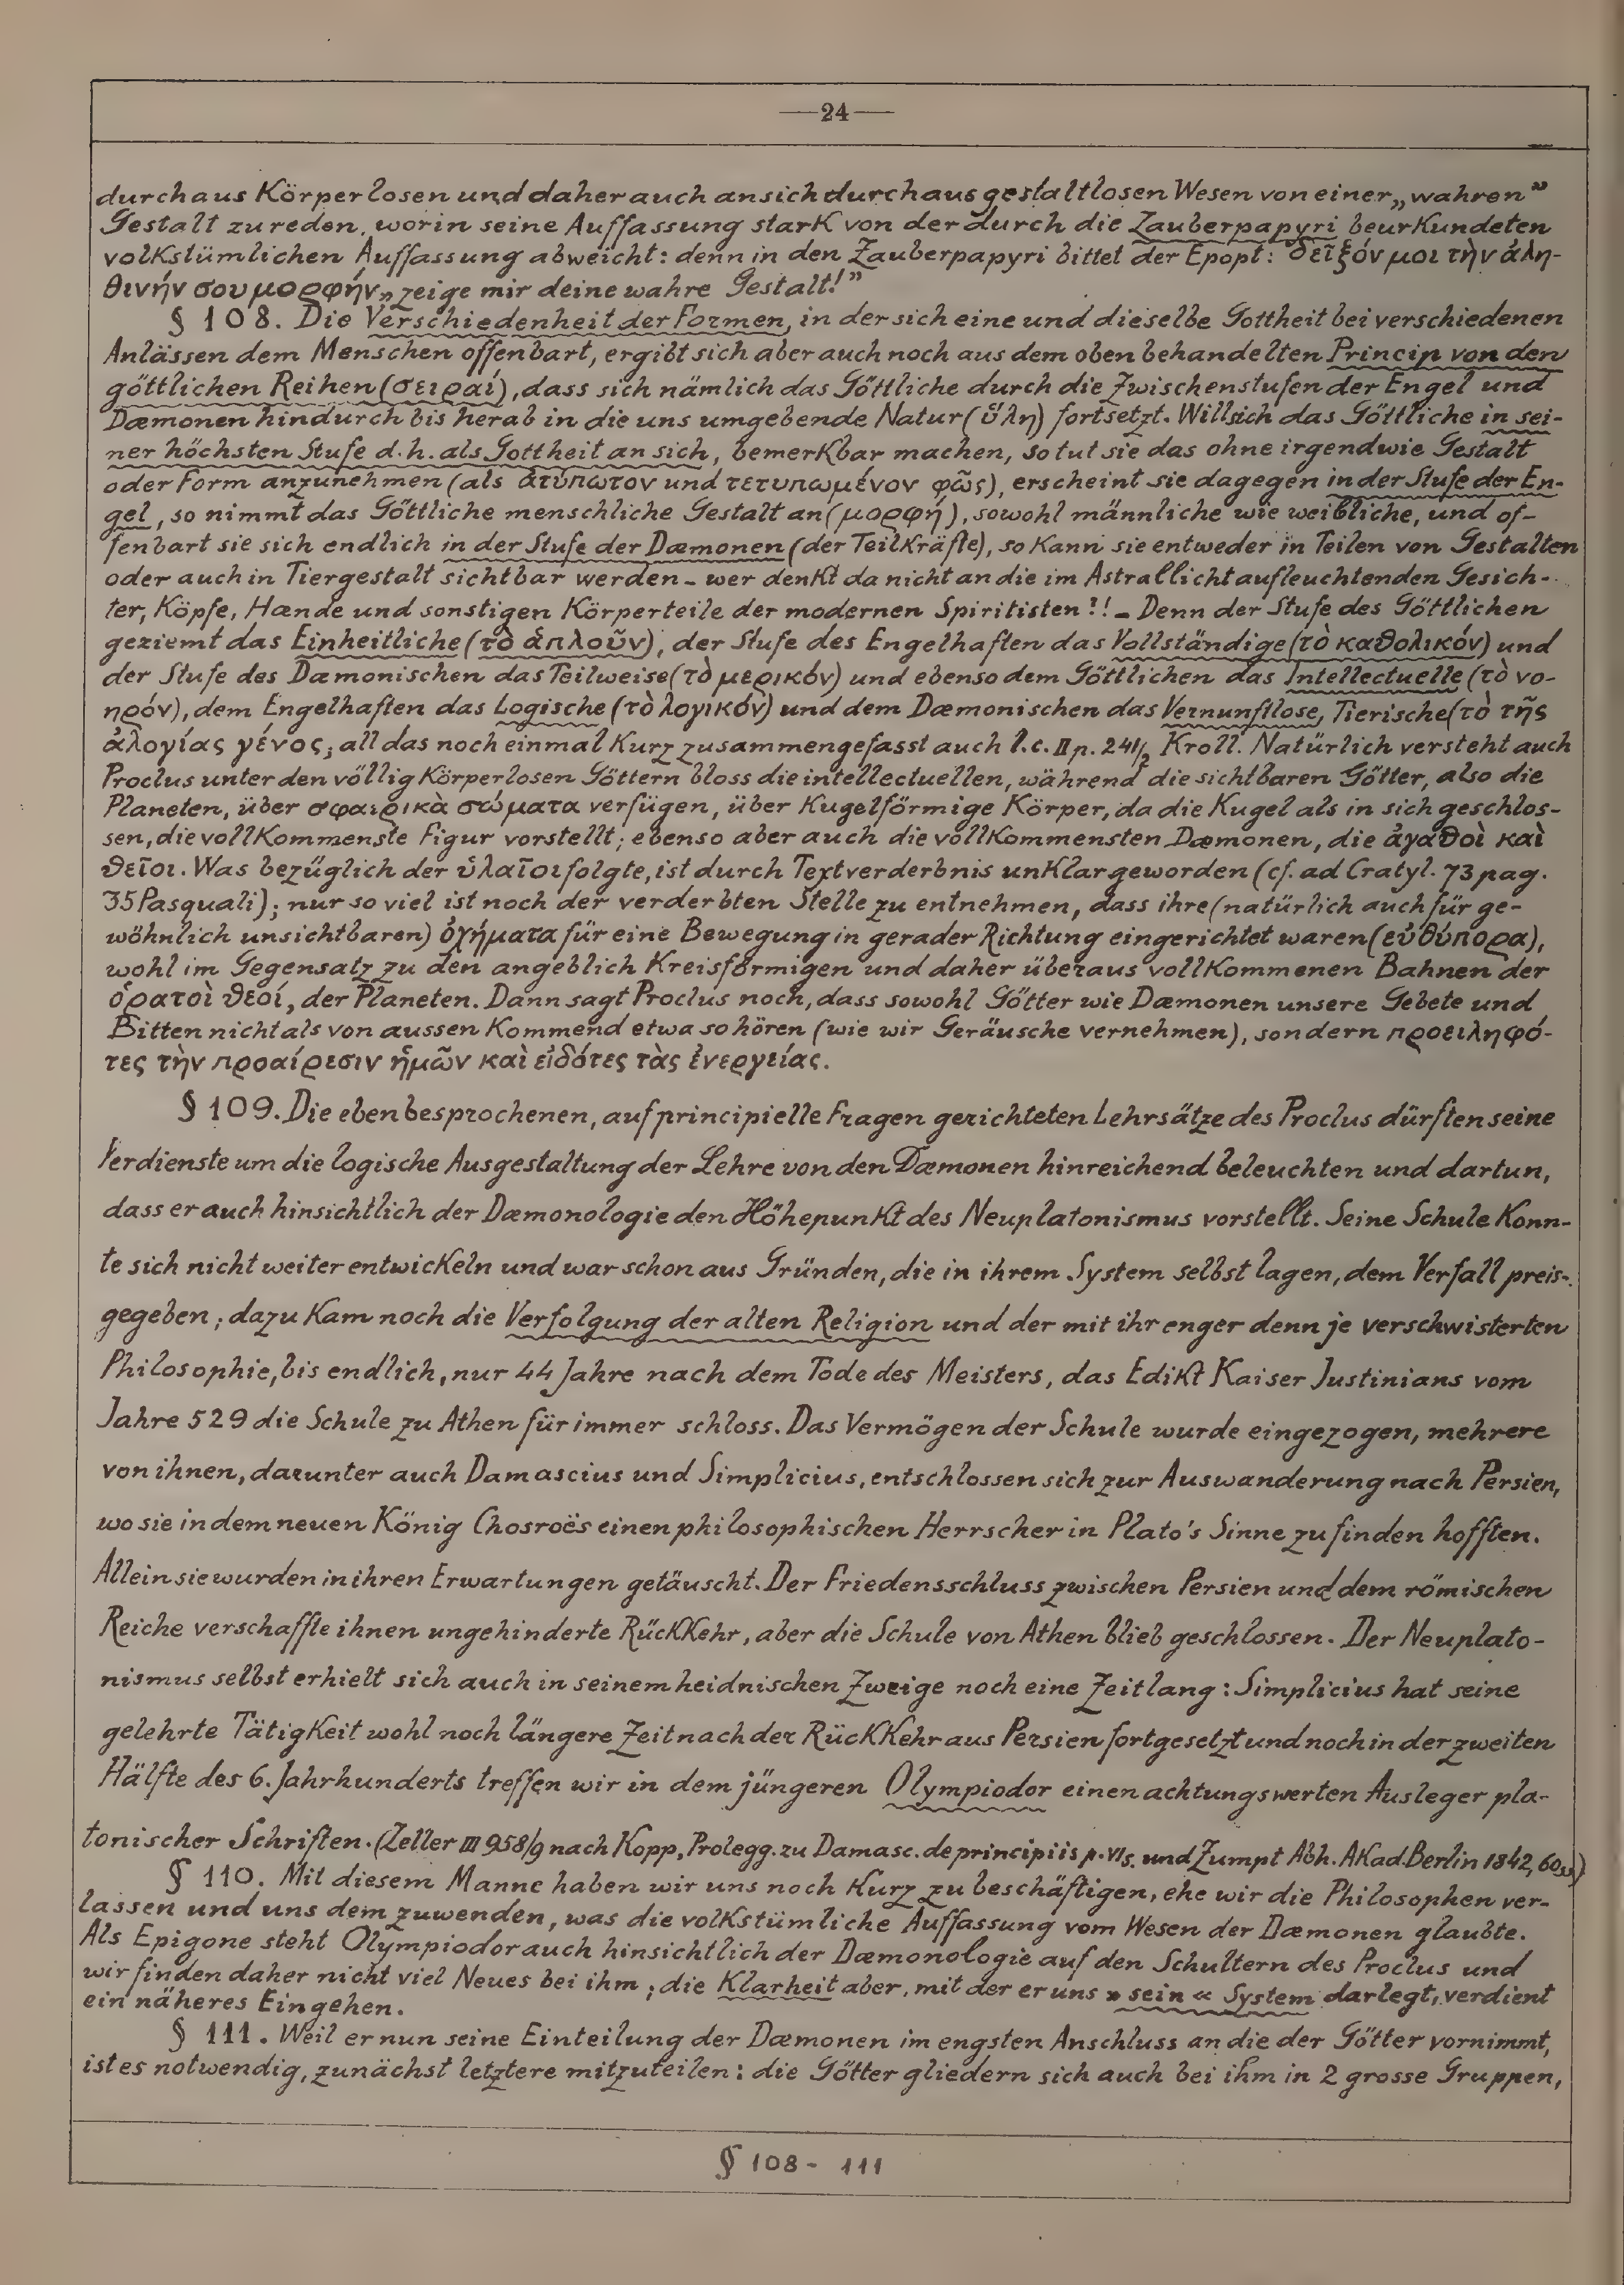 —24—
durchaus Körperlosen und daher auch an sich durchaus gestaltlosen Wesen von einer „wahren”
Gestalt zu reden, worin seine Auffassung stark von der durch die Zauberpapyri beurkundeten
volkstümlichen Auffassung abweicht: denn in den Zauberpapyri bittet der Epopt: δεῖξόν μοι τὴν ἀλη-
θινήν σου μορφήν„ zeige mir deine wahre Gestalt!”
§ 108. Die Verschiedenheit der Formen, in der sich eine und dieselbe Gottheit bei verschiedenen
Anlässen dem Menschen offenbart, ergibt sich aber auch noch aus dem oben behandelten Princip von den
göttlichen Reihen (σειραί), dass sich nämlich das Göttliche durch die Zwischenstufen der Engel und
Dæmonen hindurch bis herab in die uns umgebende Natur (ὕλη) fortsetzt. Will sich das Göttliche in sei-
ner höchsten Stufe d.h. als Gottheit an sich, bemerkbar machen, so tut sie das ohne irgendwie Gestalt
oder Form anzunehmen (als ἀτύπωτον und τετυπωμένον φῶς), erscheint sie dagegen in der Stufe der En-
gel, so nimmt das Göttliche menschliche Gestalt an (μορφή), sowohl männliche wie weibliche, und of-
fenbart sie sich endlich in der Stufe der Dæmonen (der Teilkräfte), so kann sie entweder in Teilen von Gestalten
oder auch in Tiergestalt sichtbar werden - wer denkt da nicht an die im Astrallicht aufleuchtenden Gesich-
ter, Köpfe, Hænde und sonstigen Körperteile der modernen Spiritisten?! - Denn der Stufe des Göttlichen
geziemt das Einheitliche (τὸ ἁπλοῦν), der Stufe des Engelhaften das Vollständige (τὸ καθολικόν) und
der Stufe des Dæmonischen das Teilweise (τὸ μερικόν) und ebenso dem Göttlichen das Intellectuelle (τὸ νο-
ηρόν), dem Engelhaften das Logische (τὸ λογικόν) und dem Dæmonischen das Vernunftlose, Tierische (τὸ τῆς
ἀλογίας γένος; all das noch einmal kurz zusammengefasst auch l.c. II p. 241/2 Kroll. Natürlich versteht auch
Proclus unter den völlig körperlosen Göttern bloss die intellectuellen, während die sichtbaren Götter, also die
Planeten, über σφαιρικὰ σώματα verfügen, über kugelförmige Körper, da die Kugel als in sich geschlos-
sen, die vollkommenste Figur vorstellt; ebenso aber auch die vollkommensten Dæmonen, die ἀγαθοὶ καὶ
θεῖοι. Was bezüglich der ὑλαῖοι folgte, ist durch Textverderbnis unklar geworden (cf. ad Cratyl. 73 pag.
35 Pasquali); nur so viel ist noch der verderbten Stelle zu entnehmen, dass ihre (natürlich auch für ge-
wöhnlich unsichtbaren) ὀχήματα für eine Bewegung in gerader Richtung eingerichtet waren (εὐθύπορα),
wohl im Gegensatz zu den angeblich kreisförmigen und daher überaus vollkommenen Bahnen der
ὁρατοὶ θεοί, der Planeten. Dann sagt Proclus noch, dass sowohl Götter wie Dæmonen unsere Gebete und
Bitten nicht als von aussen kommend etwa so hören (wie wir Geräusche vernehmen), sondern προειληφό-
τες τὴν προαίρεσιν ἡμῶν καὶ εἰδότες τὰς ἐνεργείας.
§ 109. Die eben besprochenen, auf principielle Fragen gerichteten Lehrsätze des Proclus dürften seine
Verdienste um die logische Ausgestaltung der Lehre von den Dæmonen hinreichend beleuchten und dartun,
dass er auch hinsichtlich der Dæmonologie den Höhepunkt des Neuplatonismus vorstellt. Seine Schule konn-
te sich nicht weiter entwickeln und war schon aus Gründen, die in ihrem System selbst lagen, dem Verfall preis-
gegeben; dazu kam noch die Verfolgung der alten Religion und der mit ihr enger denn je verschwisterten
Philosophie, bis endlich, nur 44 Jahre nach dem Tode des Meisters, das Edikt Kaiser Justinians vom
Jahre 529 die Schule zu Athen für immer schloss. Das Vermögen der Schule wurde eingezogen, mehrere
von ihnen, darunter auch Damascius und Simplicius, entschlossen sich zur Auswanderung nach Persien,
wo sie in dem neuen König Chosroës einen philosophischen Herrscher in Plato's Sinne zu finden hofften.
Allein sie wurden in ihren Erwartungen getäuscht. Der Friedensschluss zwischen Persien und dem römischen
Reiche verschaffte ihnen ungehinderte Rückkehr, aber die Schule von Athen blieb geschlossen. Der Neuplato-
nismus selbst erhielt sich auch in seinem heidnischen Zweige noch eine Zeitlang: Simplicius hat seine
gelehrte Tätigkeit wohl noch längere Zeit nach der Rückkehr aus Persien fortgesetzt und noch in der zweiten
Hälfte des 6. Jahrhunderts treffen wir in dem jüngeren Olympiodor einen achtungswerten Ausleger pla-
tonischer Schriften. (Zeller III 958/9 nach Kopp, Prolegg. zu Damasc. de principiis p. VIs. und Zumpt Abh. Akad. Berlin 1842, 60ss)
§ 110. Mit diesem Manne haben wir uns noch kurz zu beschäftigen, ehe wir die Philosophen ver-
lassen und uns dem zuwenden, was die volkstümliche Auffassung vom Wesen der Dæmonen glaubte.
Als Epigone steht Olympiodor auch hinsichtlich der Dæmonologie auf den Schultern des Proclus und
wir finden daher nicht viel Neues bei ihm; die Klarheit aber, mit der er uns » sein « System darlegt, verdient
ein näheres Eingehen.
§ 111. Weil er nun seine Einteilung der Dæmonen im engsten Anschluss an die der Götter vornimmt,
ist es notwendig, zunächst letztere mitzuteilen: die Götter gliedern sich auch bei ihm in 2 grosse Gruppen,
§ 108 - 111